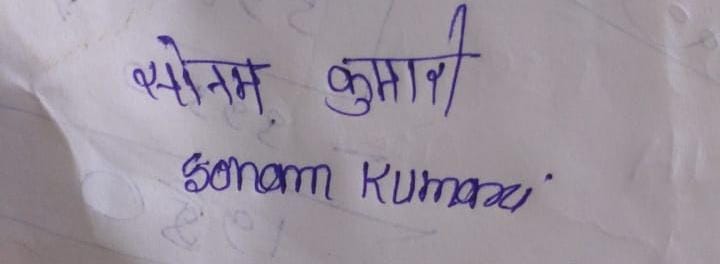 सोनम कुमारी
Sonam Kumari